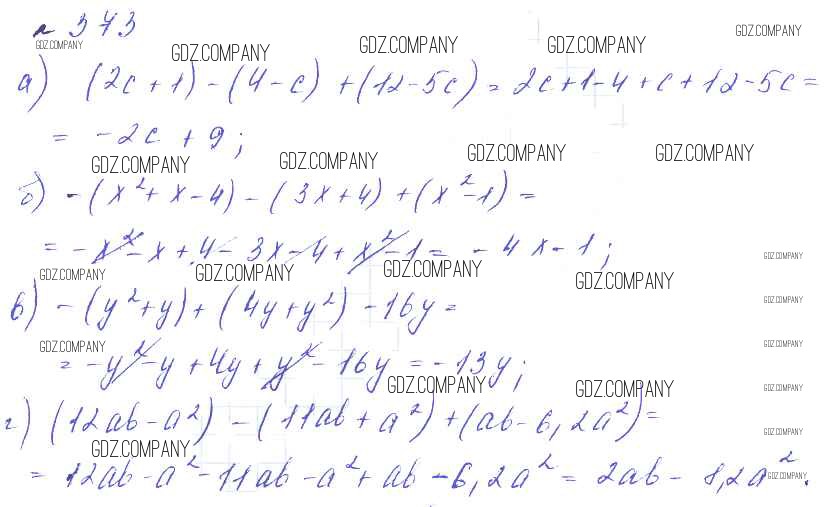 № 373
GDZ.COMPANY GDZ.COMPANY GDZ.COMPANY GDZ.COMPANY GDZ.COMPANY
а) (2c + 1) - (4 - c) + (12 - 5c) = 2c + 1 - 4 + c + 12 - 5c =
= -2c + 9;
GDZ.COMPANY GDZ.COMPANY GDZ.COMPANY GDZ.COMPANY
б) -(x² + x - 4) - (3x + 4) + (x² - 1) =
= -x² - x + 4 - 3x - 4 + x² - 1 = -4x - 1;
GDZ.COMPANY
GDZ.COMPANY GDZ.COMPANY GDZ.COMPANY GDZ.COMPANY
в) -(y² + y) + (4y + y²) - 16y =
GDZ.COMPANY
GDZ.COMPANY GDZ.COMPANY
= -y² - y + 4y + y² - 16y = -13y;
GDZ.COMPANY GDZ.COMPANY GDZ.COMPANY
г) (12ab - a²) - (11ab + a²) + (ab - 6,2a²) =
GDZ.COMPANY GDZ.COMPANY
= 12ab - a² - 11ab - a² + ab - 6,2a² = 2ab - 8,2a².
GDZ.COMPANY